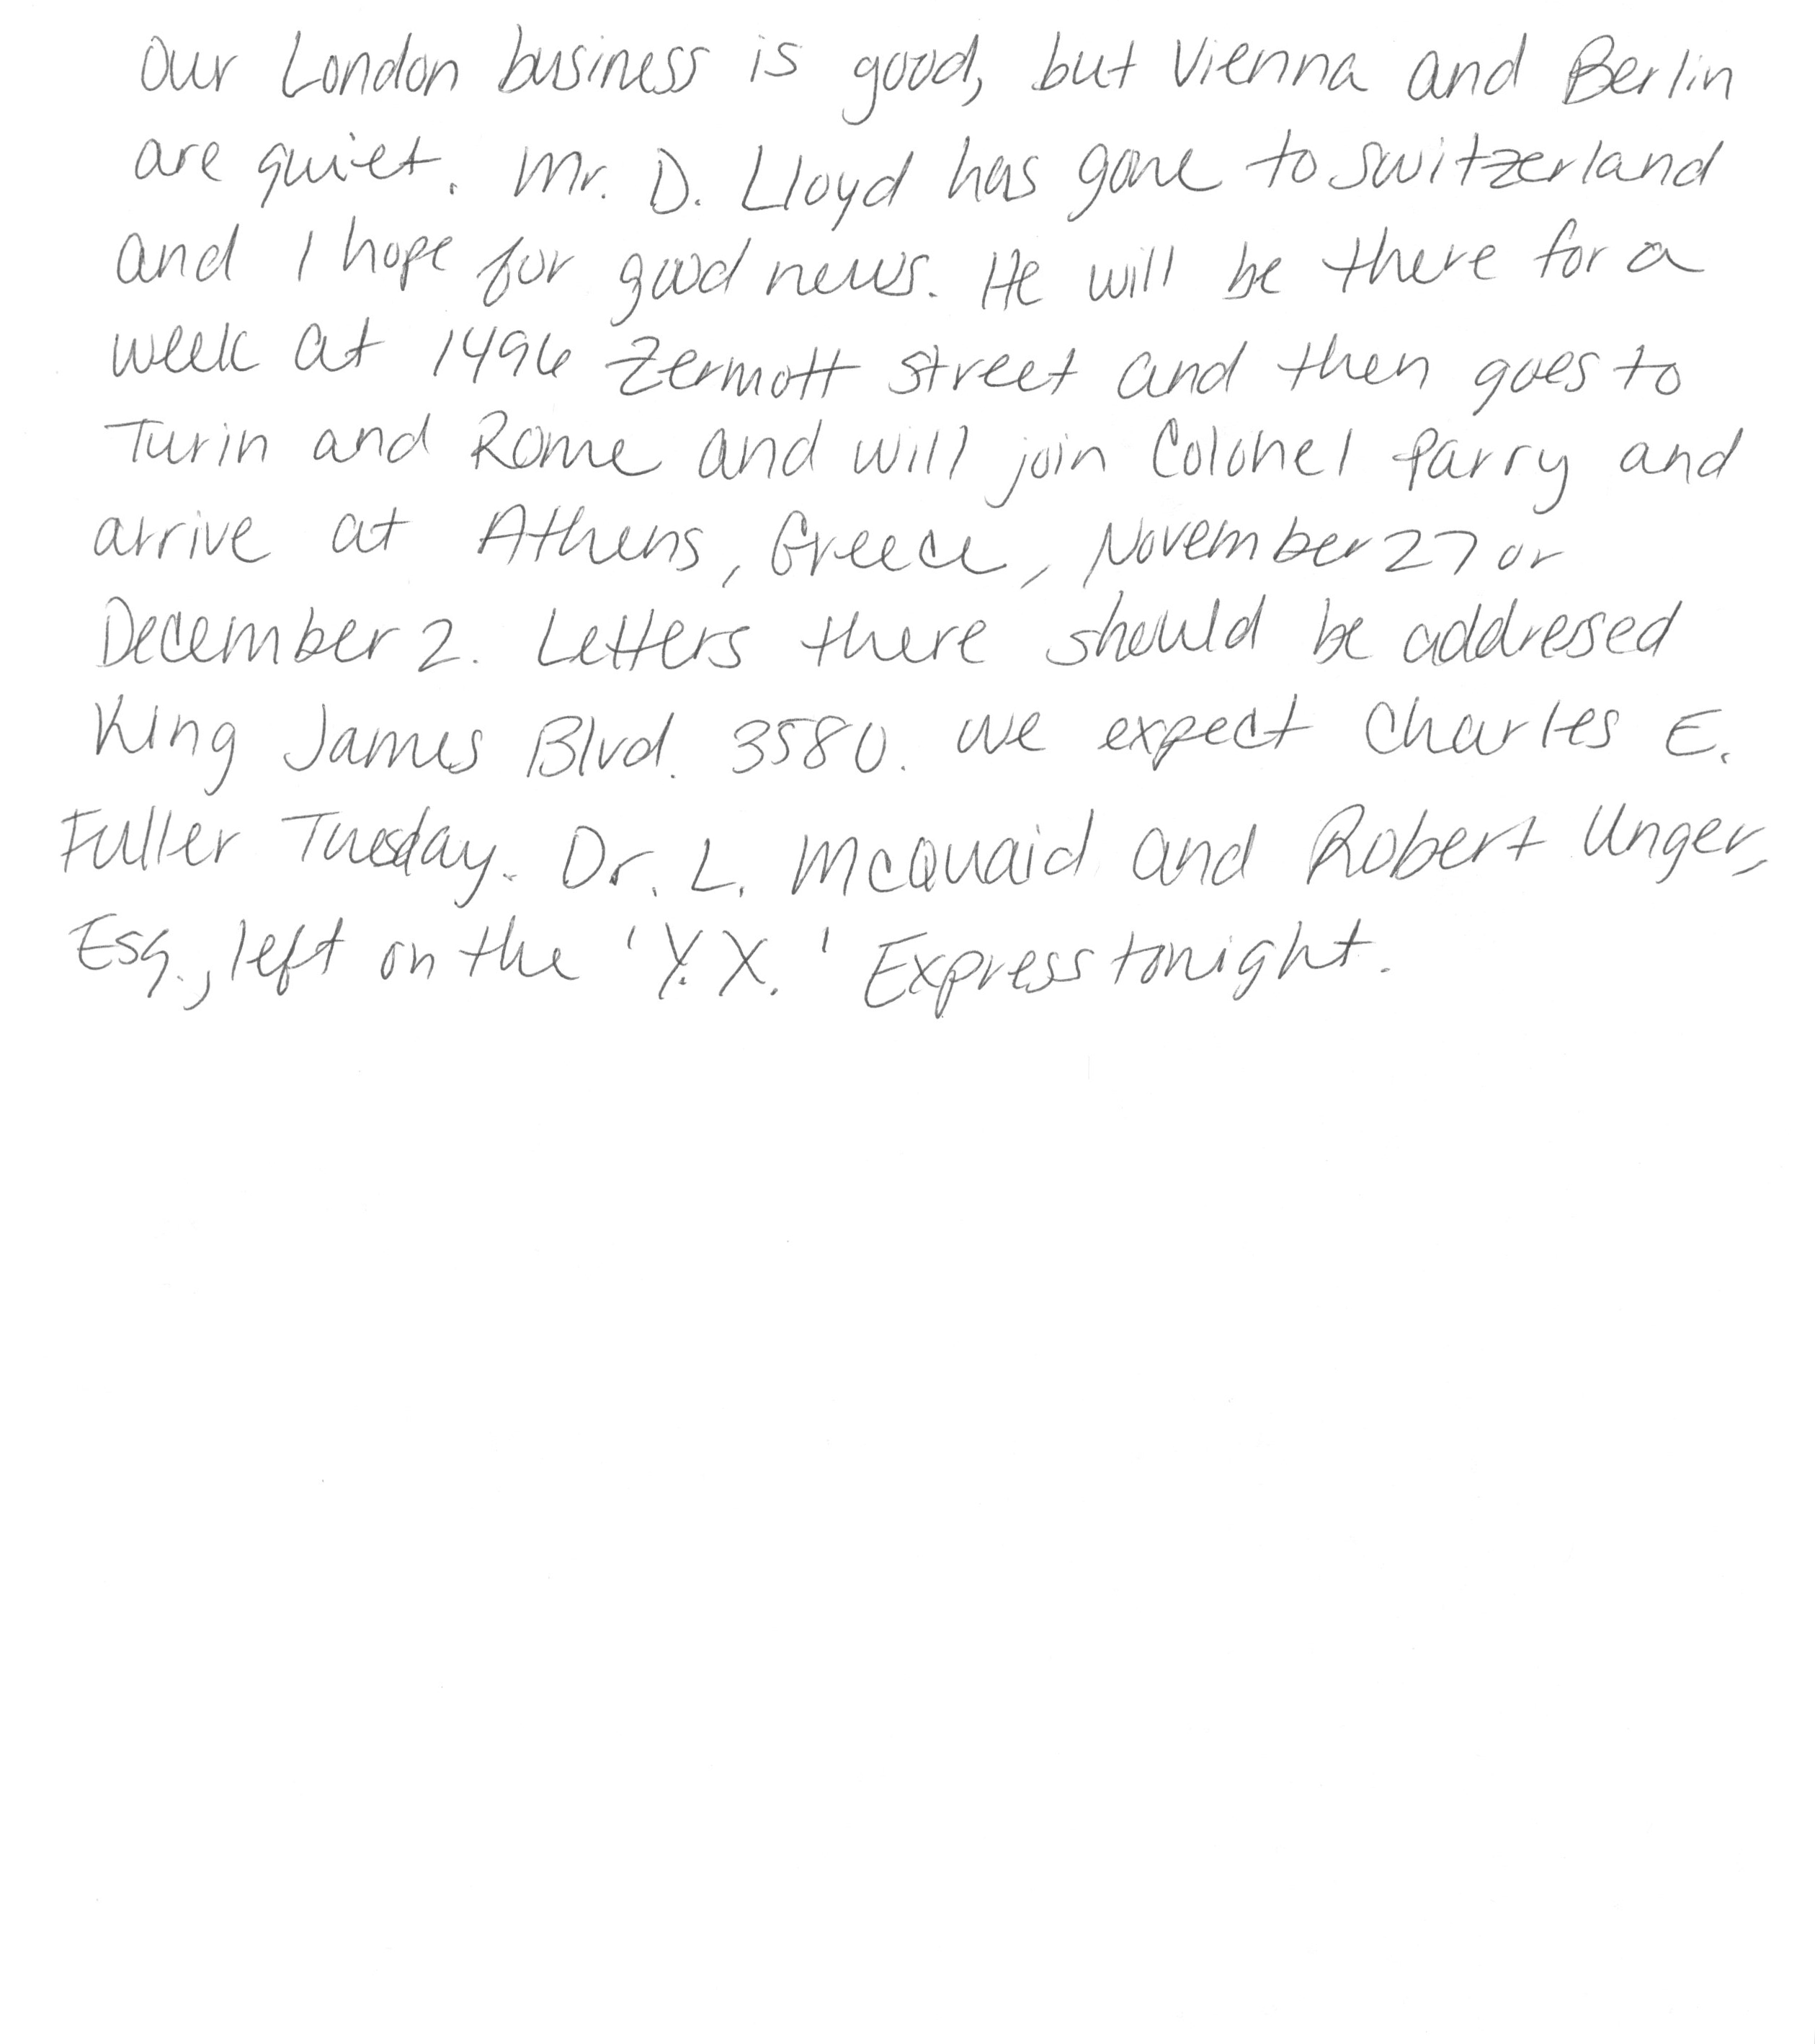 Our London business is good, but Vienna and Berlin
are quiet. Mr. D. Lloyd has gone to Switzerland
and I hope for good news. He will be there for a
week at 1496 Zermott street and then goes to
Turin and Rome and will join Colonel Parry and
arrive at Athens, Greece, November 27 or
December 2. Letters there should be addressed
King James Blvd. 3580. We expect Charles E.
Fuller Tuesday. Dr. L. McQuaid and Robert Unger,
Esq., left on the 'Y.X.' Express tonight.